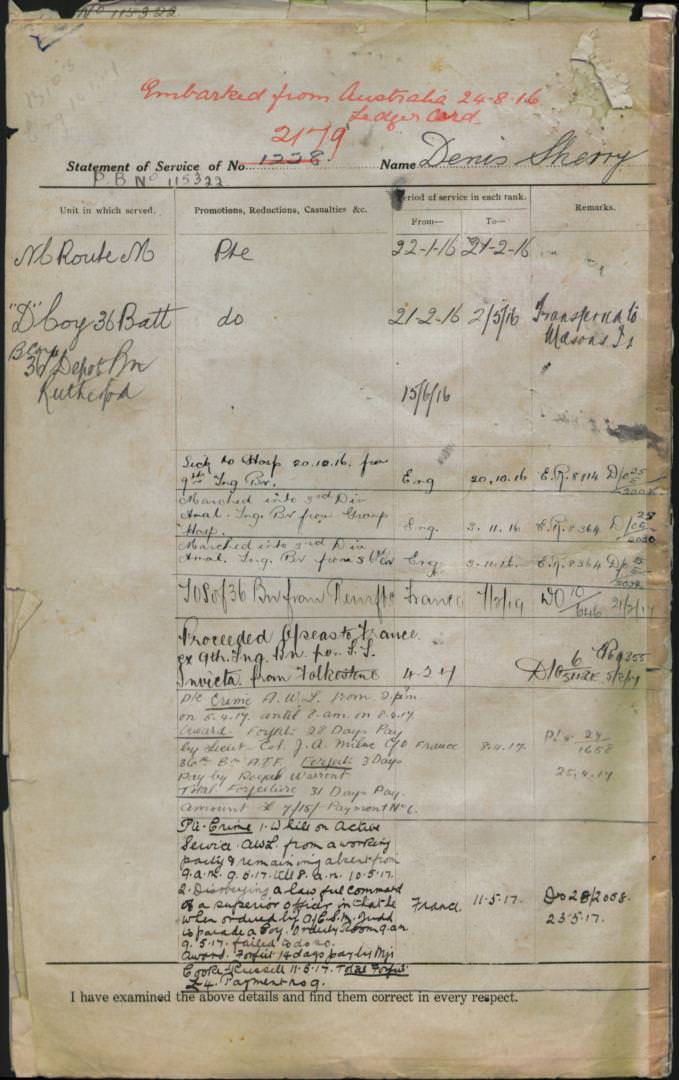 No 115322
Embarked from Australia 24-8-16
Ledger Card
2179
Statement of Service of No. 1228 Name Denis Sherry
P.B No 115322
Unit in which served. Promotions, Reductions, Casualties &c. Period of service in each rank. Remarks.
From— To—
N Route M Pte 22-1-16 21-2-16
"D" Coy 36 Batt do 21-2-16 2/5/16 Transferred to
Masons
B Coy
36 Depot Bn
Rutherford 15/6/16
Sick to Hosp 20.10.16. from
9th Tng Bn. Eng 20.10.16 E.R. 8114 D/o
Marched into 3rd Div
Amal. Tng. Bn from Group
Hosp. Eng. 3.11.16 E.R. 8364 D/o
Marched into 3rd Div
Amal. Tng. Bn from Eng 3.11.16. E.R. 8364
TOS of 36 Bn from Reinfts France DO 10/646 21/2/17
Proceeded O/seas to France
ex 9th. Tng Bn. per S.S.
Invicta from Folkestone 4-2-17 D/O 6
Pte Crime A.W.L. from 2 pm.
on 5.4.17. until 8.am. on 8.4.17
Award. Forfeits 28 Days Pay
by Lieut. Col. J. A. Milne C/O France 8.4.17. 24/1658
36th Bn A.I.F. Forfeits 3 Days
Pay by Royal Warrant 25.4.17
Total Forfeiture 31 Days Pay.
Amount £ 7/15/- Payment No 6.
Pte. Crime 1. While on Active
Service. AWL. from a working
party & remaining absent from
9.a.m. 9.5.17. till 8.a.m. 10.5.17.
2. Disobeying a lawful command
of a superior officer in that he France 11.5.17. Do 28/2058.
when ordered by A/C.S.M. Judd 23.5.17.
to parade a Coy. Orderly Room 9.am
9.5.17. failed to do so.
Award. Forfeit 14 days pay by Mjr
Cooke Russell 11.5.17. Total Forfeit
£4. Payment no 9.
I have examined the above details and find them correct in every respect.